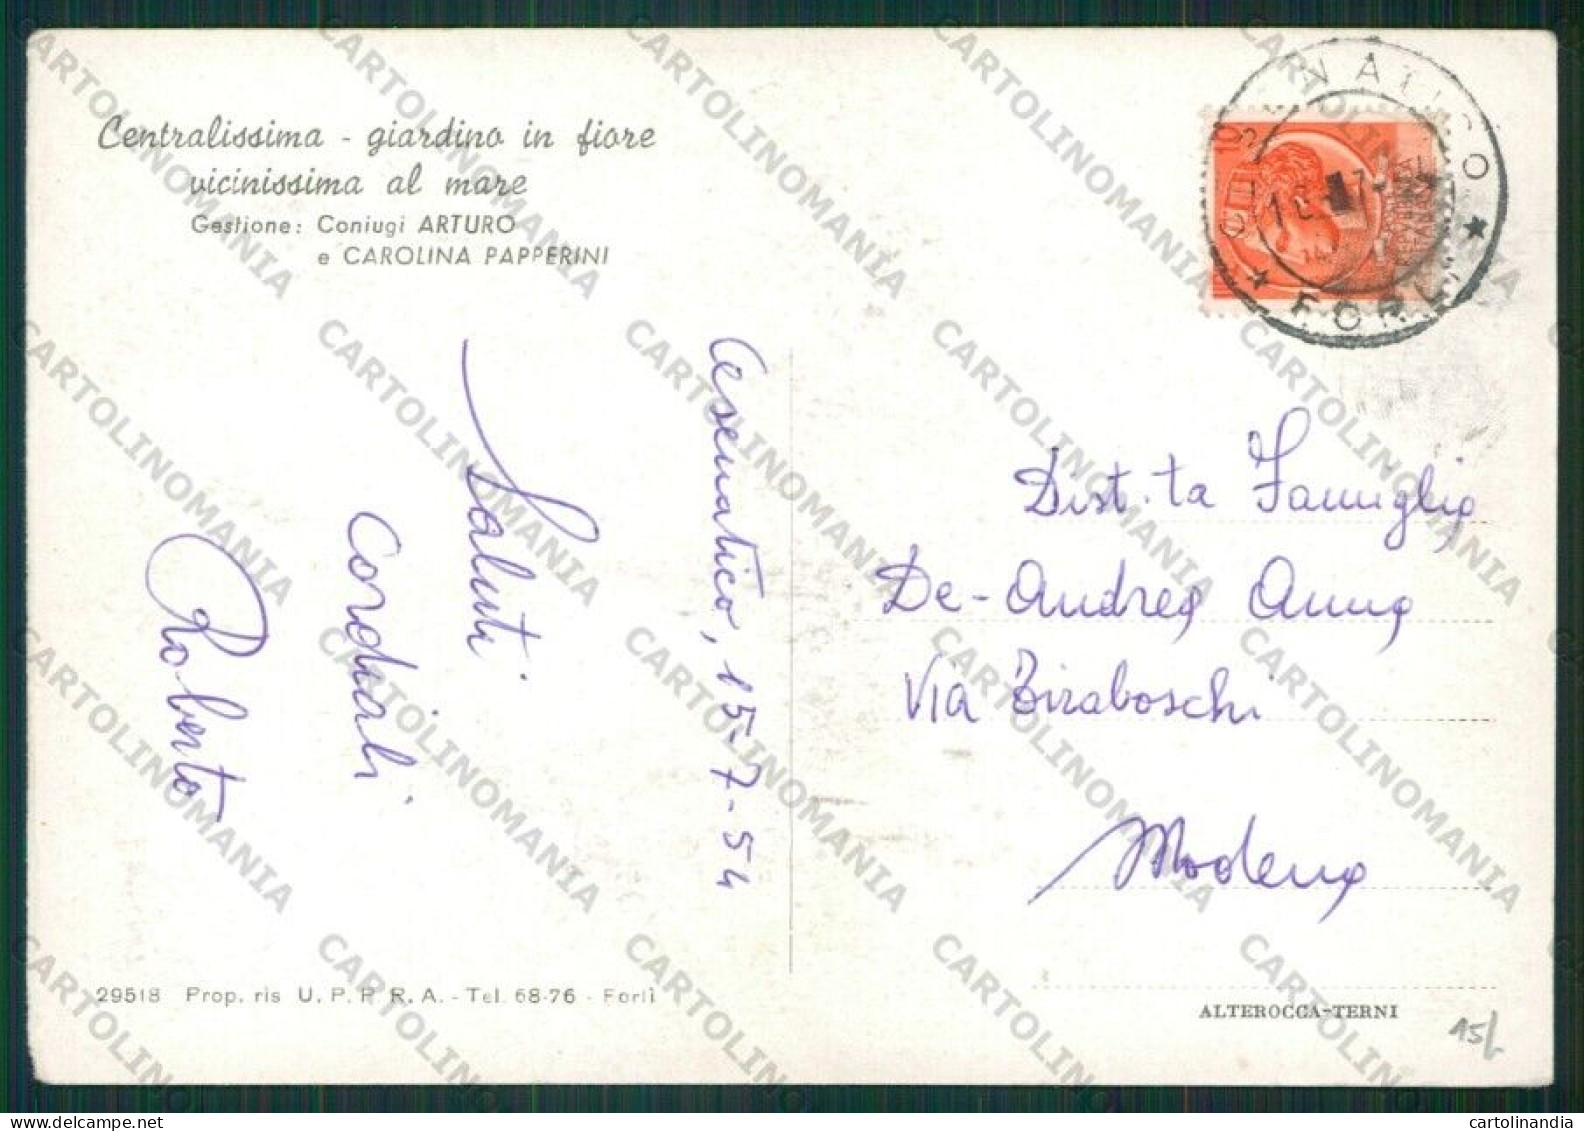 Centralissima - giardino in fiore
vicinissima al mare
Gestione: Coniugi ARTURO
e CAROLINA PAPPERINI
Cesenatico, 15-7-54
Saluti
cordiali
Roberto
FORLI
Dist.ta Famiglia
De-Andrea Anna
Via Biraboschi
Modena
29518 Prop. ris U. P. P. R. A. - Tel. 68-76 - Forlì
ALTEROCCA-TERNI
CARTOLINOMANIA
cartolinandia